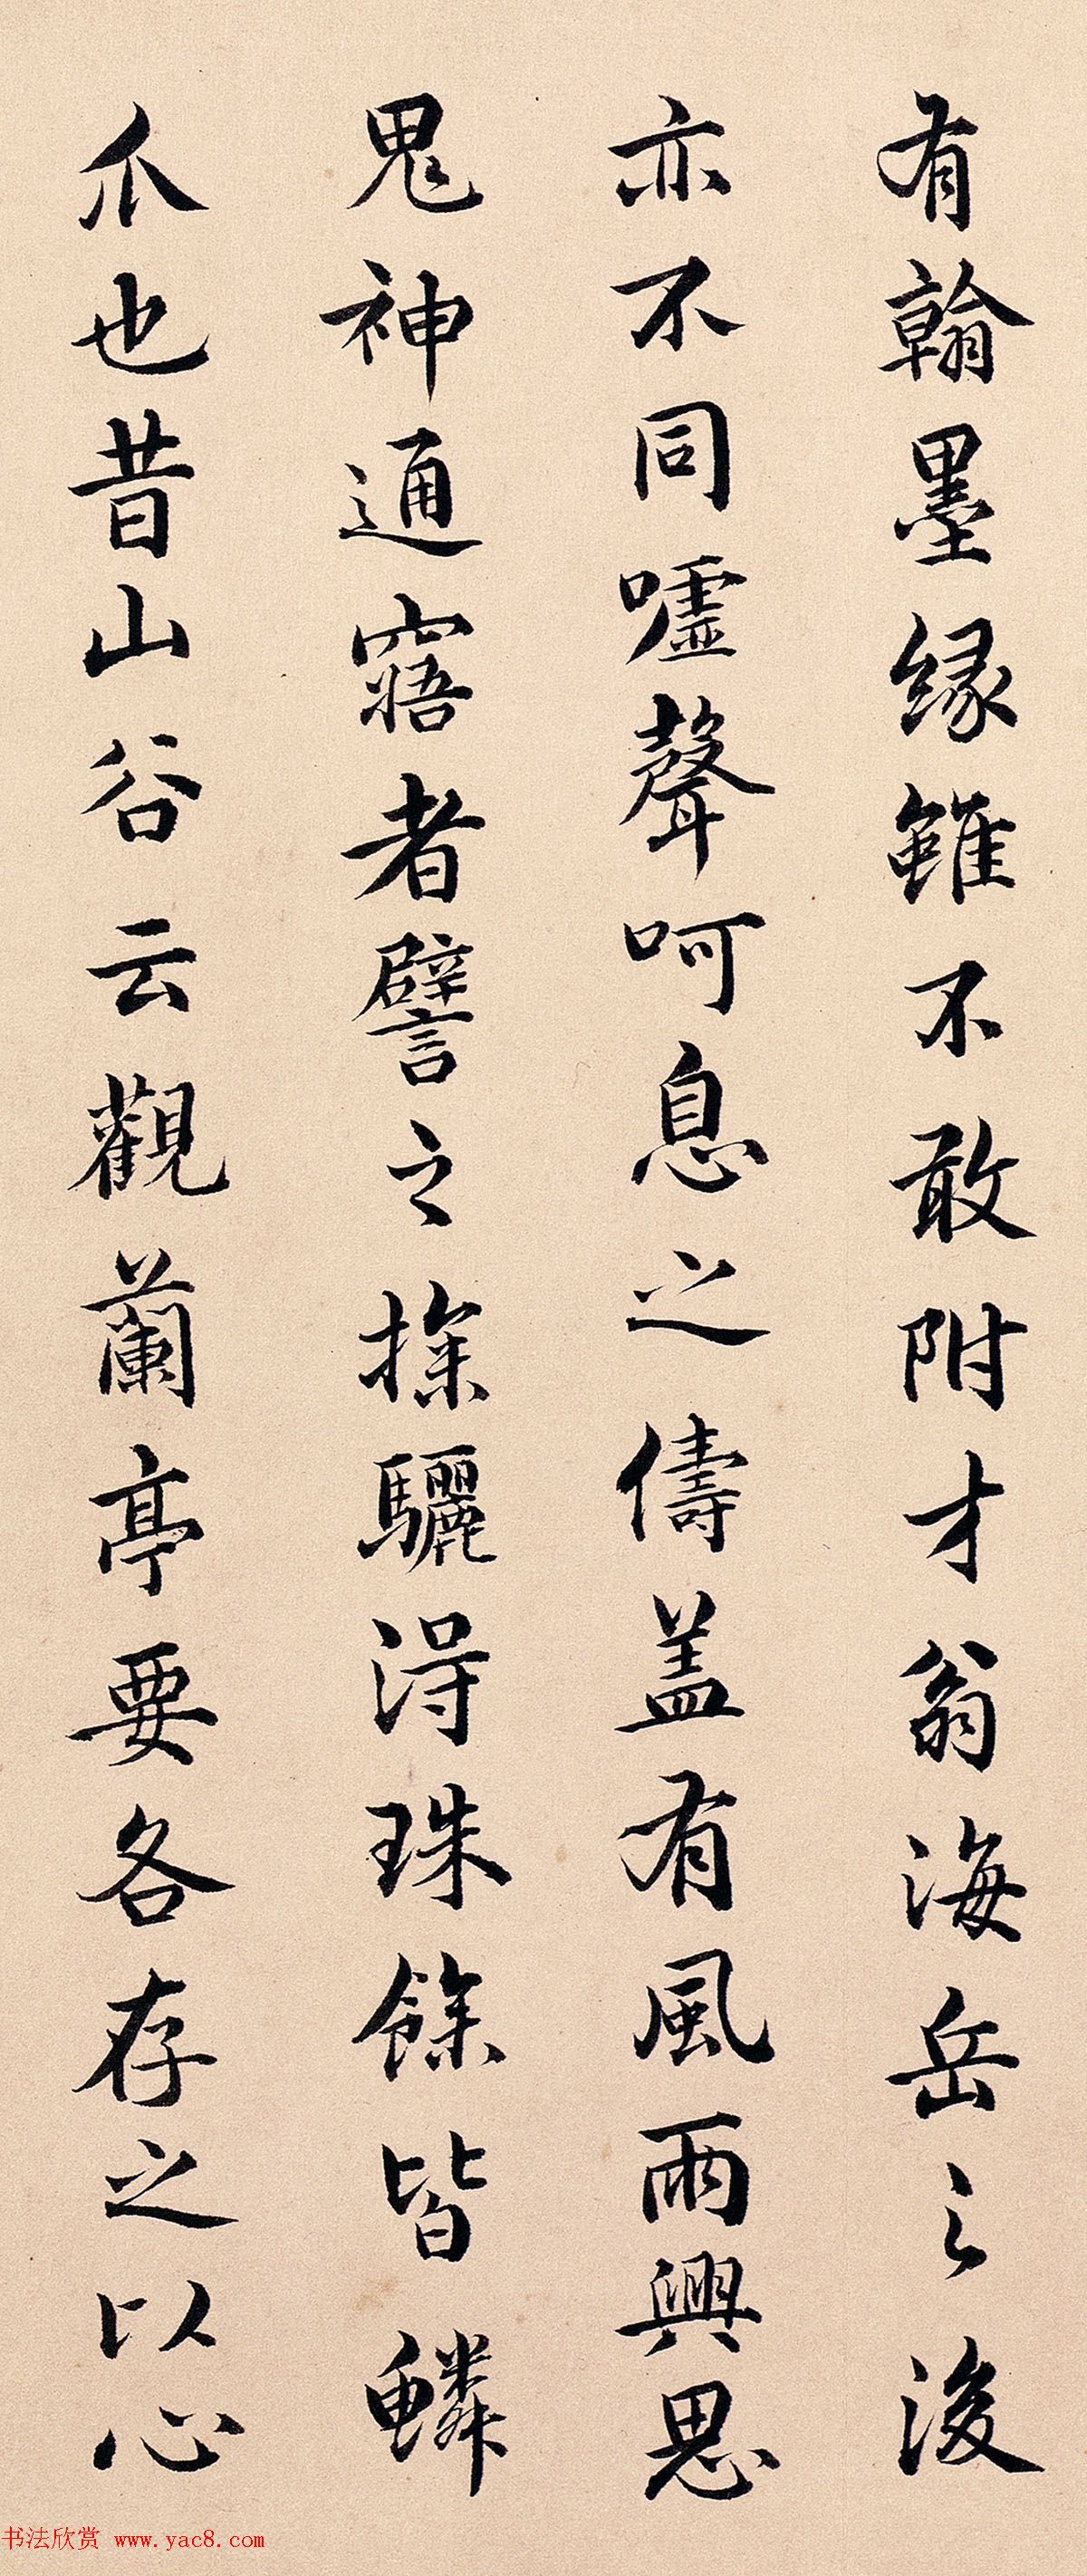 有翰墨緣雖不敢附才翁海岳之後
亦不同嘘聲呵息之儔盖有風雨興思
鬼神通寤者譬之探驪得珠餘皆鱗
爪也昔山谷云觀蘭亭要各存之以心
书法欣赏 www.yac8.com